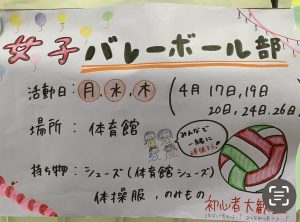 女子バレーボール部
活動日：月、水、木
（4月 17日,19日
20日,24日.26日
場所：体育館
みんなで
一緒に
持ち物：シューズ（体育館シューズ）
体操服，のみもの
初心者大歓